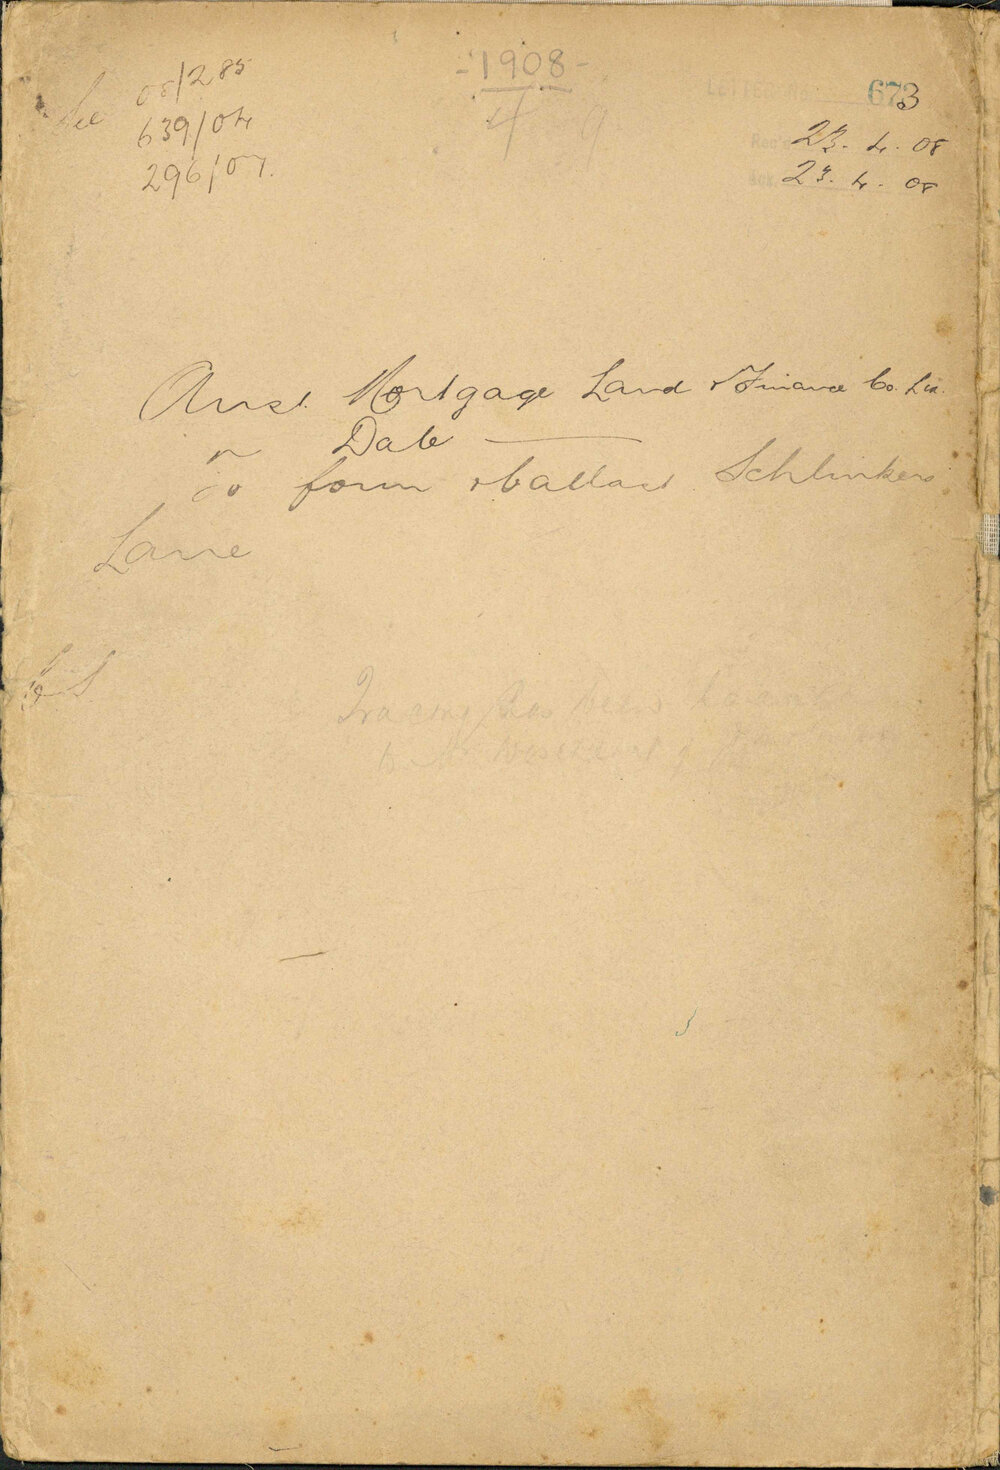 -1908-
See 08/285
639/04
296/07.
LETTER No 673
Rec'd 23. 4. 08
Ack. 23. 4. 08
Aust. Mortgage Land & Finance Co. Lim.
Date
to form & ballast Schlinkers
Lane
Tracing has been
to Mr